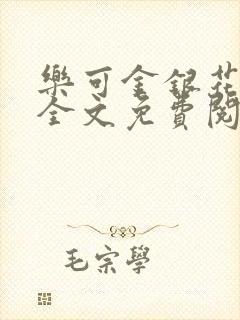 樂可金銀花
全文免費閱
毛宗學